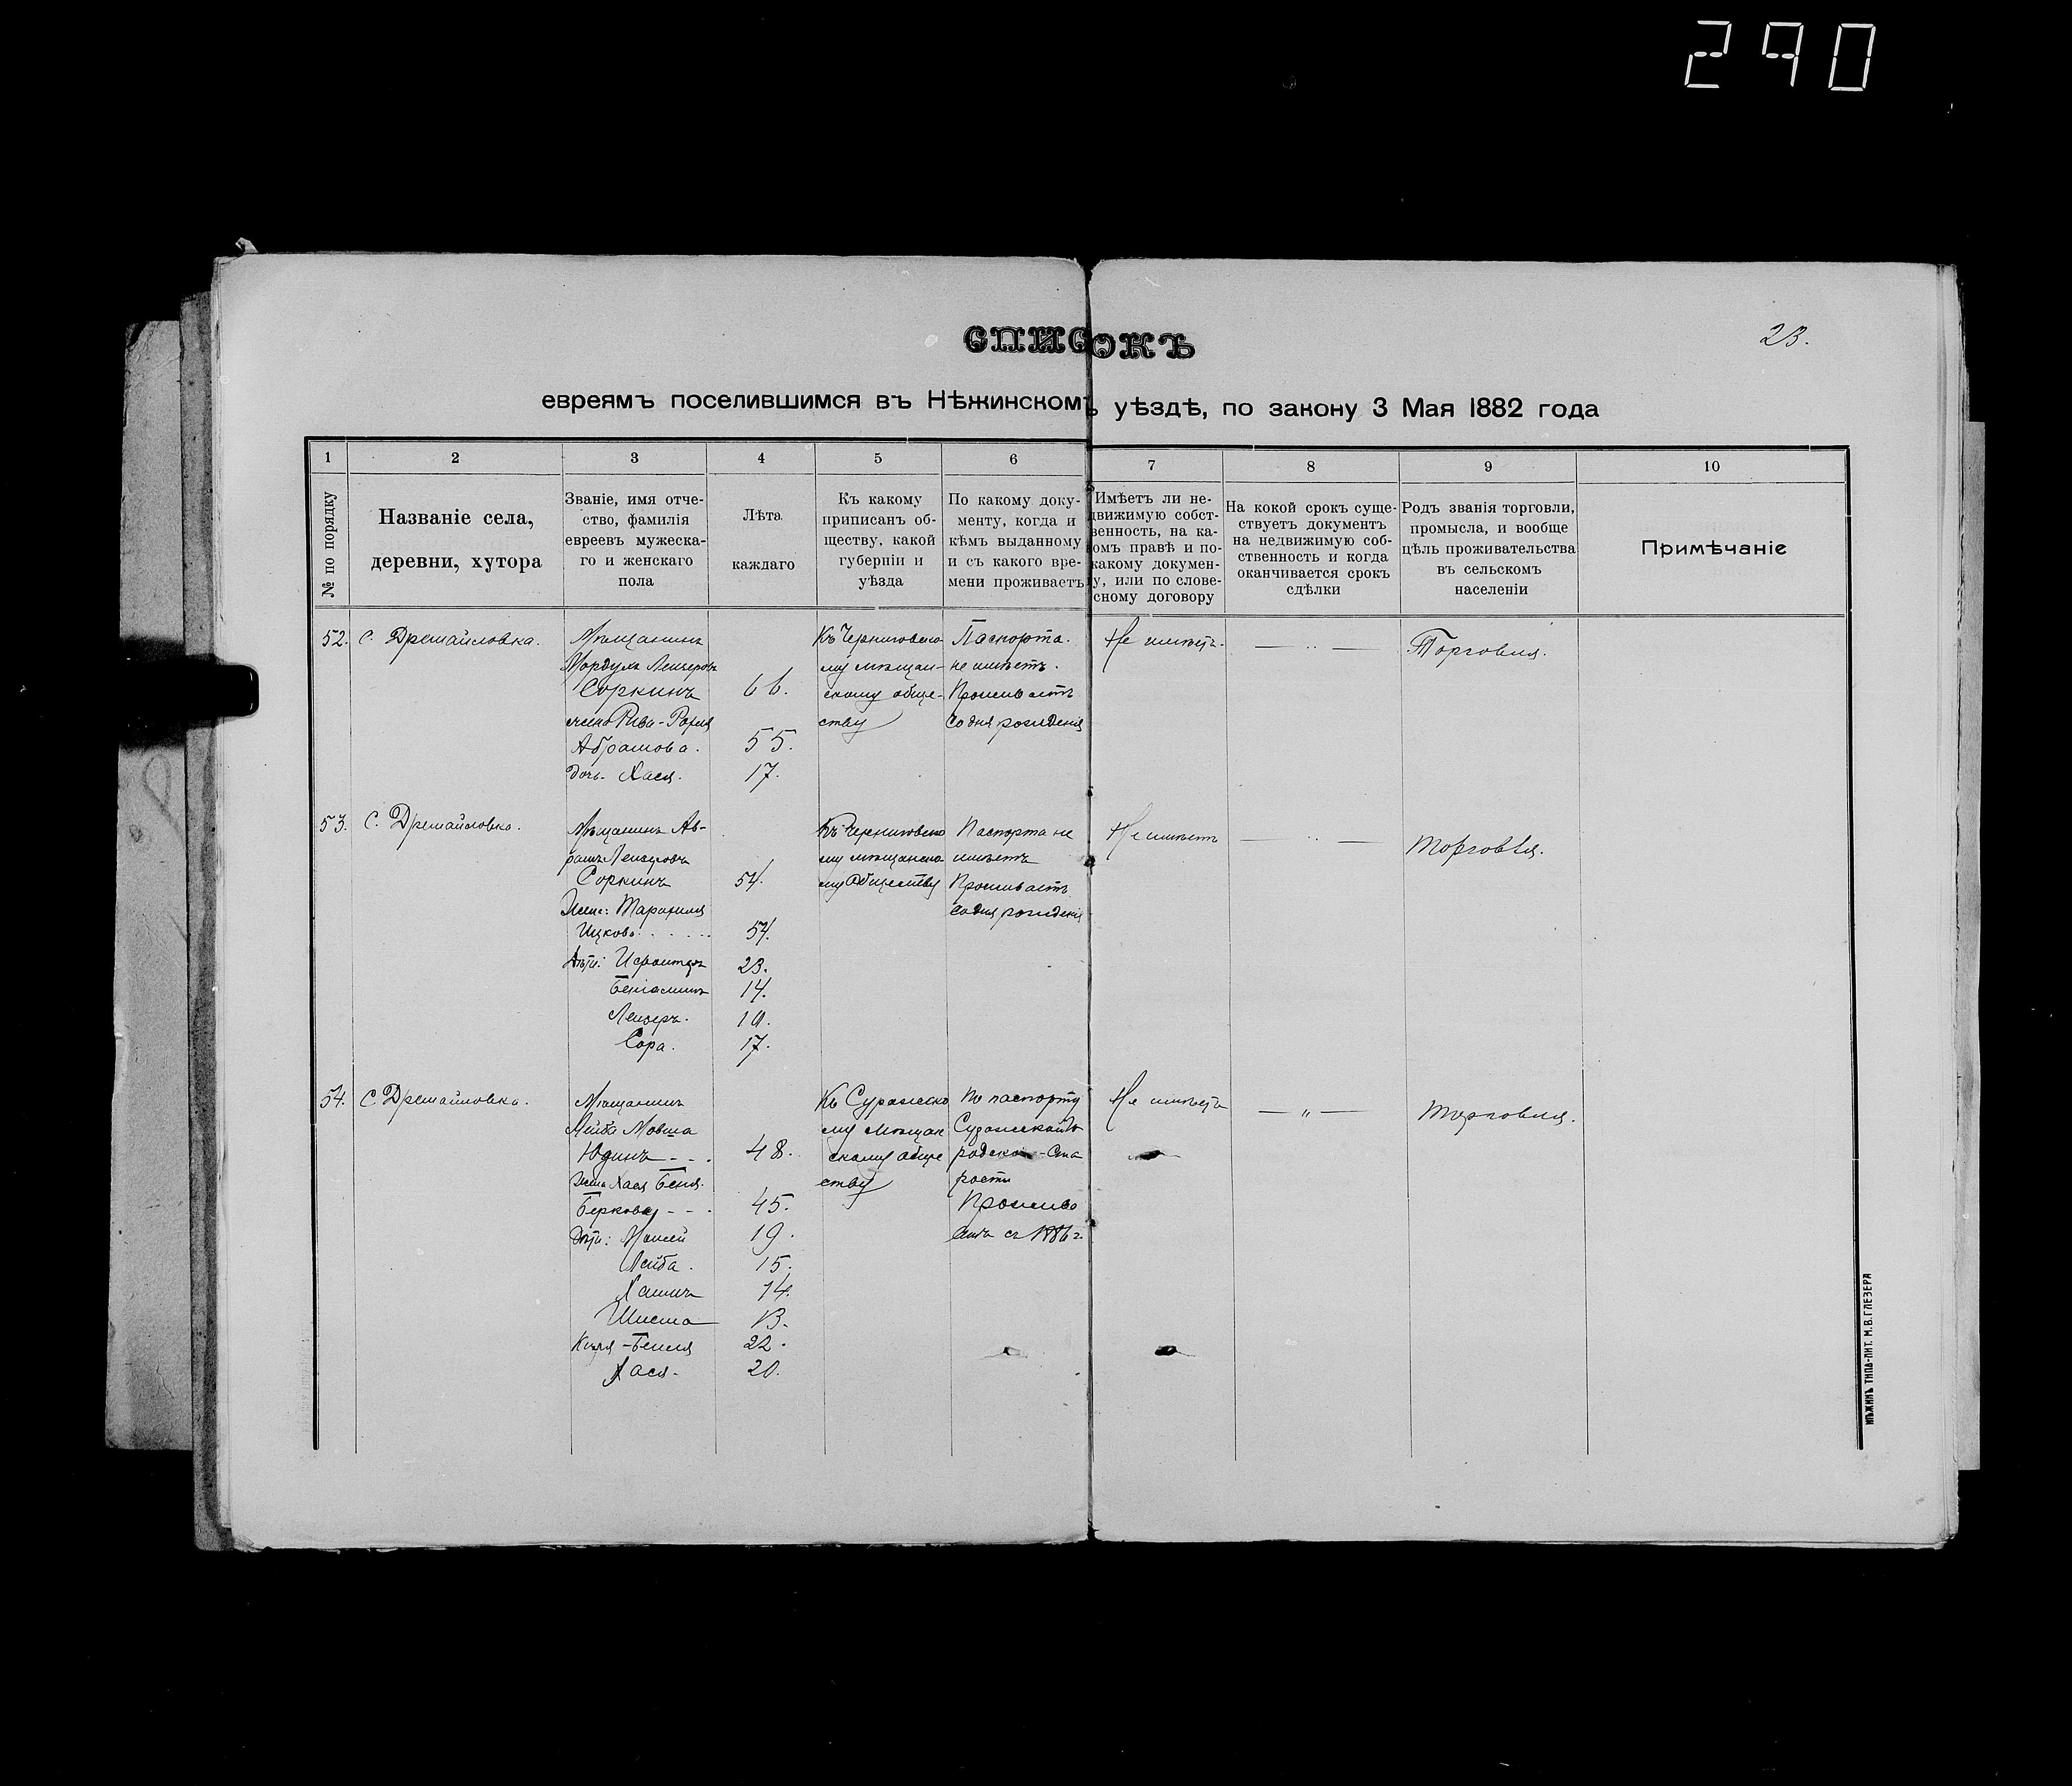 290
23.
СПИСОКЪ
евреямъ поселившимся въ Нѣжинскомъ уѣздѣ, по закону 3 Мая 1882 года
1 2 3 4 5 6 7 8 9 10
№ по порядку
Названіе села,
деревни, хутора
Званіе, имя отче-
ство, фамилія
евреевъ мужеска-
го и женскаго
пола
Лѣта
каждаго
Къ какому
приписанъ об-
ществу, какой
губерніи и
уѣзда
По какому доку-
менту, когда и
кѣмъ выданному
и съ какого вре-
мени проживаетъ
Имѣетъ ли не-
движимую собст-
венность, на ка-
комъ правѣ и по-
какому докумен-
ту, или по слове-
сному договору
На кокой срокъ суще-
ствуетъ документъ
на недвижимую соб-
ственность и когда
оканчивается срокъ
сдѣлки
Родъ званія торговли,
промысла, и вообще
цѣль проживательства
въ сельскомъ
населеніи
Примѣчаніе
52. С. Дремайловка.
Мѣщанинъ
Мордухъ Лейзеровъ
Соркинъ 66.
жена Рива-Рохля
Абрамова. 55.
дочь Хася. 17.
Къ Черниговско
му мѣщан-
скому обще-
ству
Паспорта
не имѣетъ.
Проживаетъ
со дня рожденія
Не имѣетъ.
— „ —
Торговля.
53. С. Дремайловка.
Мѣщанинъ Аб-
рамъ Лейзеровъ
Соркинъ 54.
Жена:
Ицкова 54.
Дѣти: 23.
Беніаминъ 14.
Лейзеръ. 10.
Сора. 17.
Къ Черниговско
му мѣщанско
му Обществу
Паспорта не
имѣетъ
Проживаетъ
со дня рожденія
Не имѣетъ
— „ —
Торговля.
54. С. Дремайловка.
Мѣщанинъ
Лейба Мовша
Юдинъ - - . 48.
Жена Хася Беня.
Беркова - - . 45.
Дѣти: Моисей 19.
Лейба. 15.
Хаимъ 14.
13.
22.
Хася. 20.
Къ Суражско
му мѣщан
скому обще
ству
По паспорту
Суражской Го
родской Ста
росты
Прожива
етъ съ 1886 г.
Не имѣетъ
— „ —
Торговля.
НѢЖИНЪ ТИПО-ЛИТ. М.В. ГЛЕЗЕРА